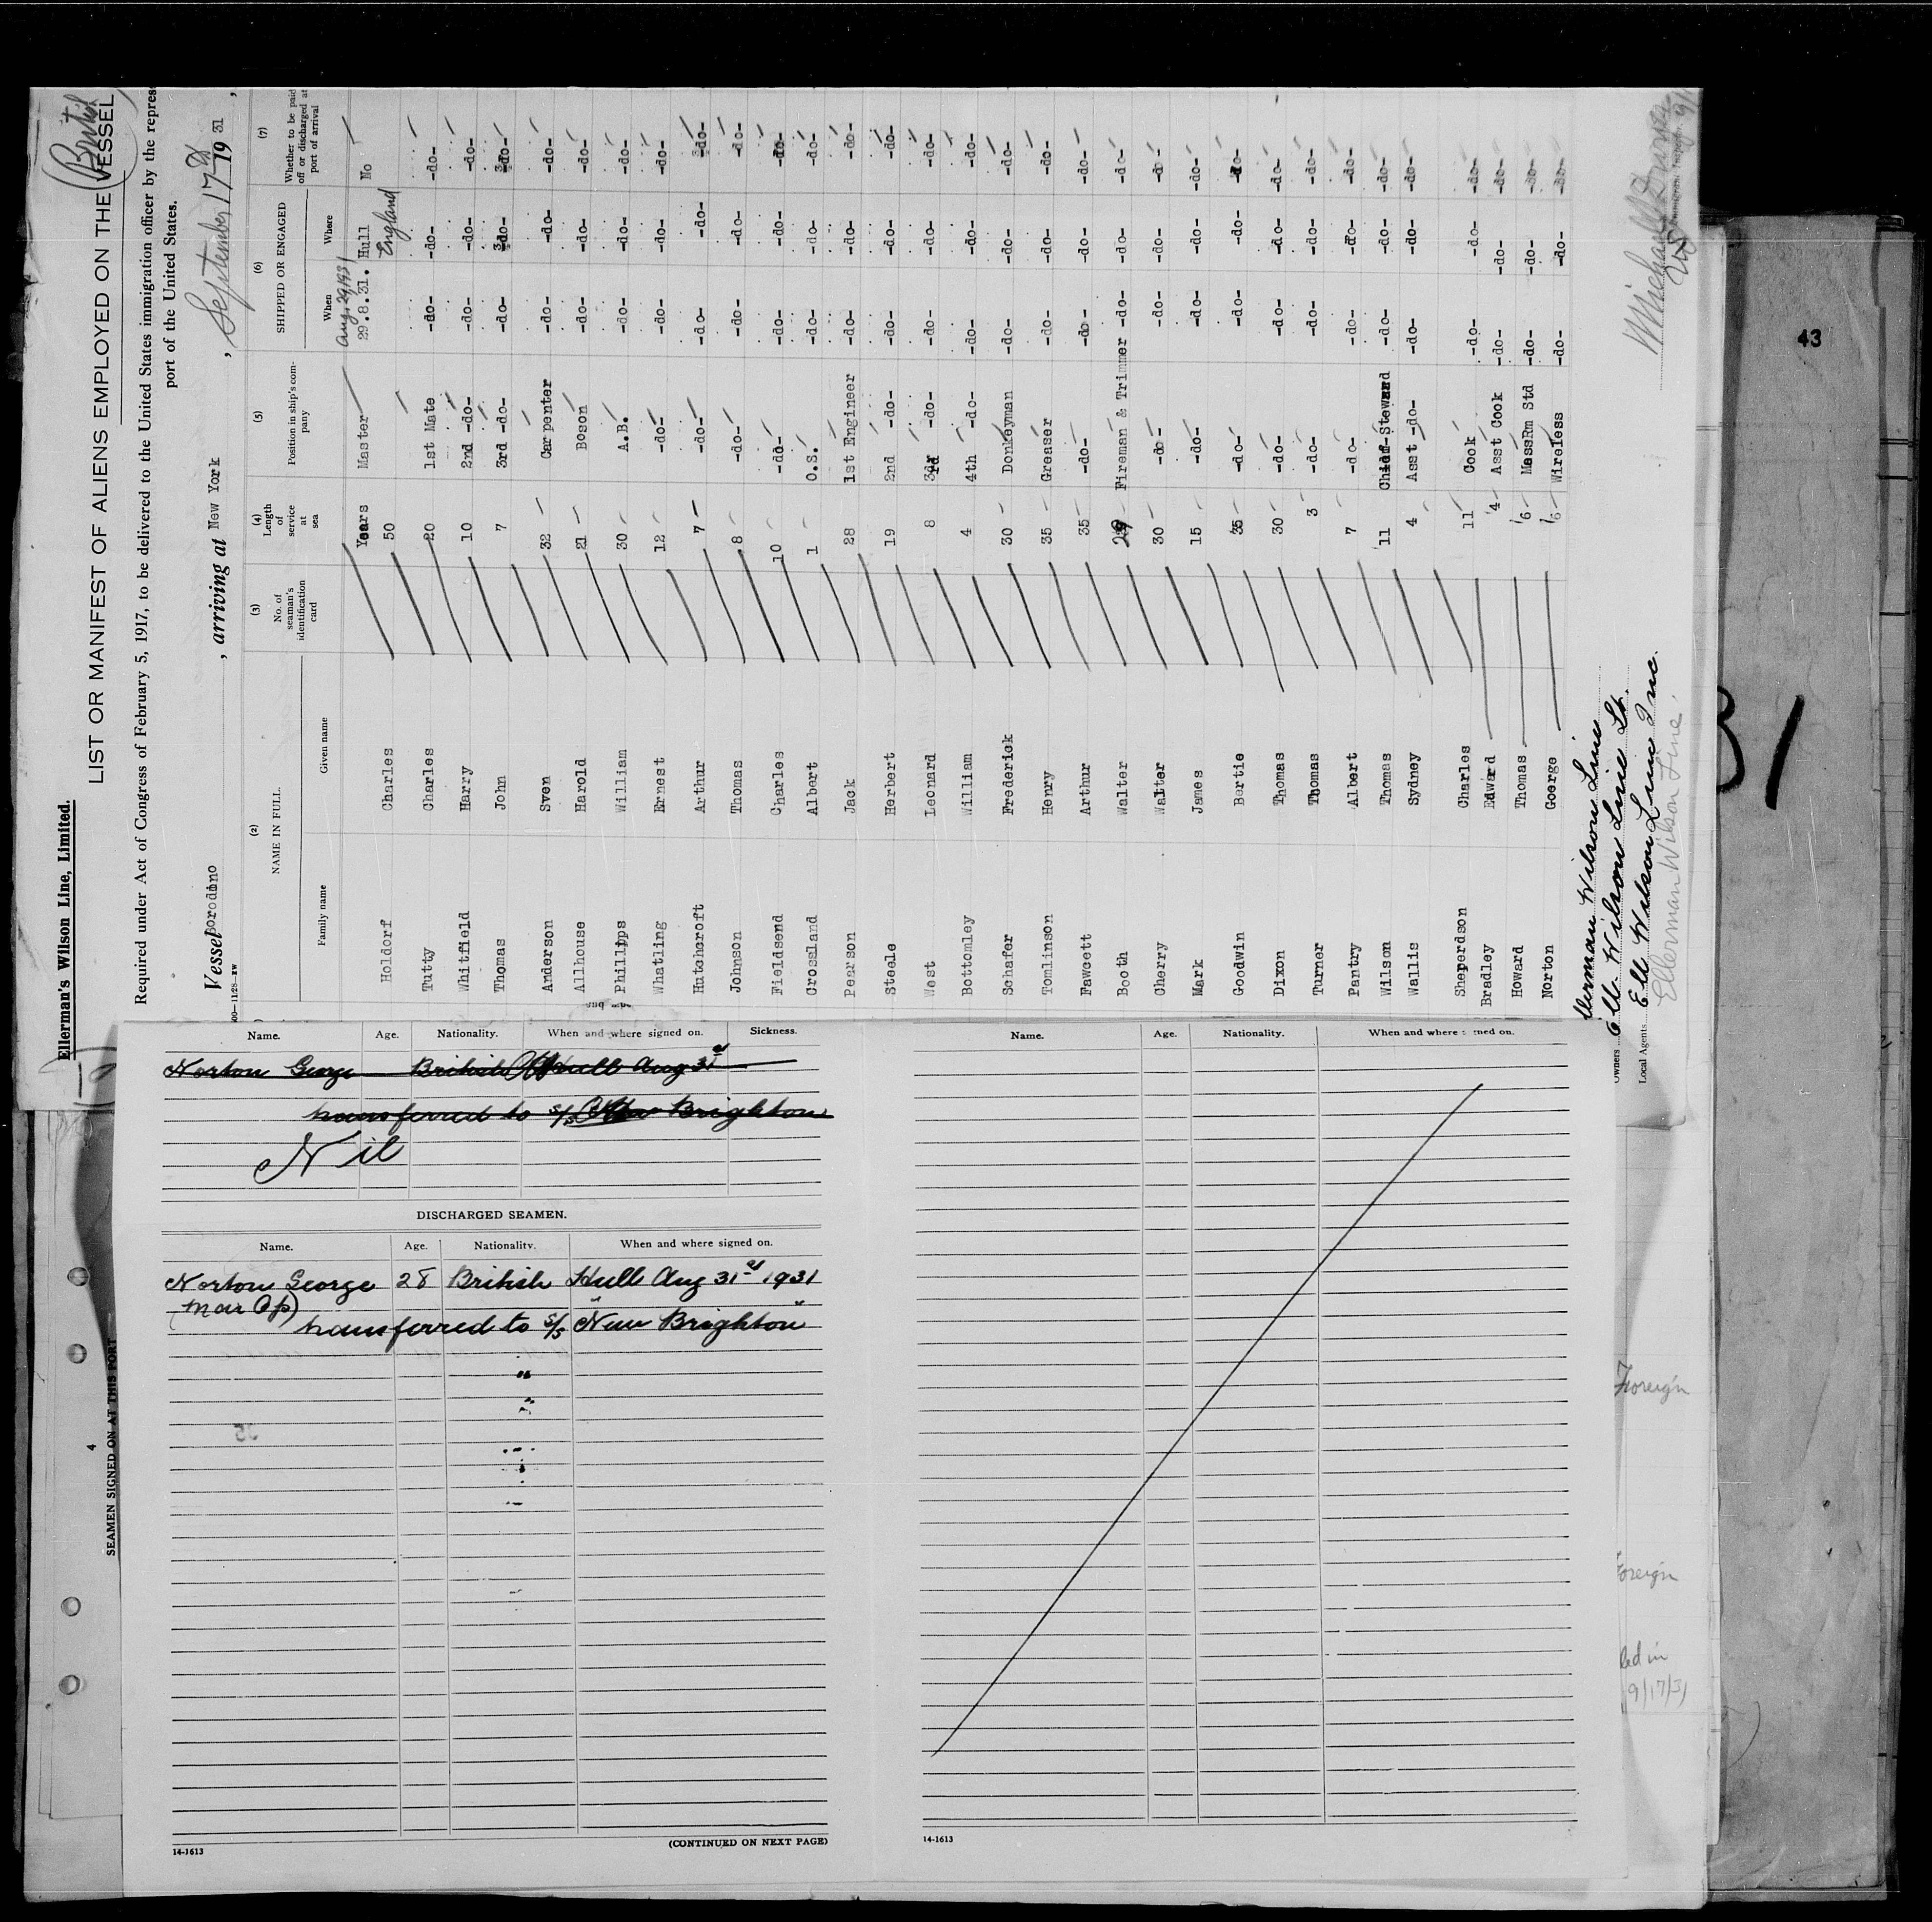 Ellerman's Wilson Line, Limited.
LIST OR MANIFEST OF ALIENS EMPLOYED ON THE VESSEL
British
Required under Act of Congress of February 5, 1917, to be delivered to the United States immigration officer by the repres
port of the United States.
Vessel Borodino , arriving at New York , September 17 19 31 ,
(2) NAME IN FULL. (3) No. of seaman's identification card (4) Length of service at sea (5) Position in ship's company (6) SHIPPED OR ENGAGED (7) Whether to be paid off or discharged at port of arrival
Family name Given name When Where
Aug 29 1931
Years Master 29.8.31. Hull No
England
Holdorf Charles 50
Tutty Charles 20 1st Mate -do- -do- -do-
Whitfield Harry 10 2nd -do- -do- -do- -do-
Thomas John 7 3rd -do- -do- -do- -do-
Anderson Sven 32 Carpenter -do- -do- -do-
Allhouse Harold 21 Boson -do- -do- -do-
Phillipps William 30 A.B. -do- -do- -do-
Whatling Ernest 12 -do- -do- -do- -do-
Hutchcroft Arthur 7 -do- -do- -do- -do-
Johnson Thomas 8 -do- -do- -do- -do-
Fieldsend Charles 10 -do- -do- -do- -do-
Crossland Albert 1 O.S. -do- -do- -do-
Pearson Jack 28 1st Engineer -do- -do- -do-
Steele Herbert 19 2nd -do- -do- -do- -do-
West Leonard 8 3rd -do- -do- -do- -do-
Bottomley William 4 4th -do- -do- -do- -do-
Schafer Frederick 30 Donkeyman -do- -do- -do-
Tomlinson Henry 35 Greaser -do- -do- -do-
Fawcett Arthur 35 -do- -do- -do- -do-
Booth Walter 29 Fireman & Trimmer -do- -do- -do-
Cherry Walter 30 -do- -do- -do- -do-
Mark James 15 -do- -do- -do- -do-
Goodwin Bertie 35 -do- -do- -do- -do-
Dixon Thomas 30 -do- -do- -do- -do-
Turner Thomas 3 -do- -do- -do- -do-
Pantry Albert 7 -do- -do- -do- -do-
Wilson Thomas 11 Chief Steward -do- -do- -do-
Wallis Sydney 4 Asst -do- -do- -do- -do-
Sheperdson Charles 11 Cook -do- -do- -do-
Bradley Edward 4 Asst Cook -do- -do- -do-
Howard Thomas 6 MessRm Std -do- -do- -do-
Norton Goerge 6 Wireless -do- -do- -do-
Wilson Line
Owners Ell Wilson Line Lt.
Local Agents Ell Wilson Line Inc.
Ellerman Wilson Line.
43
Name. Age. Nationality. When and where signed on. Sickness.
Norton George British Hull Aug 31st
transferred to s/s New Brighton
Nil
DISCHARGED SEAMEN.
Name. Age. Nationality. When and where signed on.
Norton George 28 British Hull Aug 31st 1931
(Mar Op)
transferred to s/s "New Brighton"
14-1613
(CONTINUED ON NEXT PAGE)
Name. Age. Nationality. When and where signed on.
14-1613
4
SEAMEN SIGNED ON AT THIS PORT
Foreign
Foreign
9/17/31